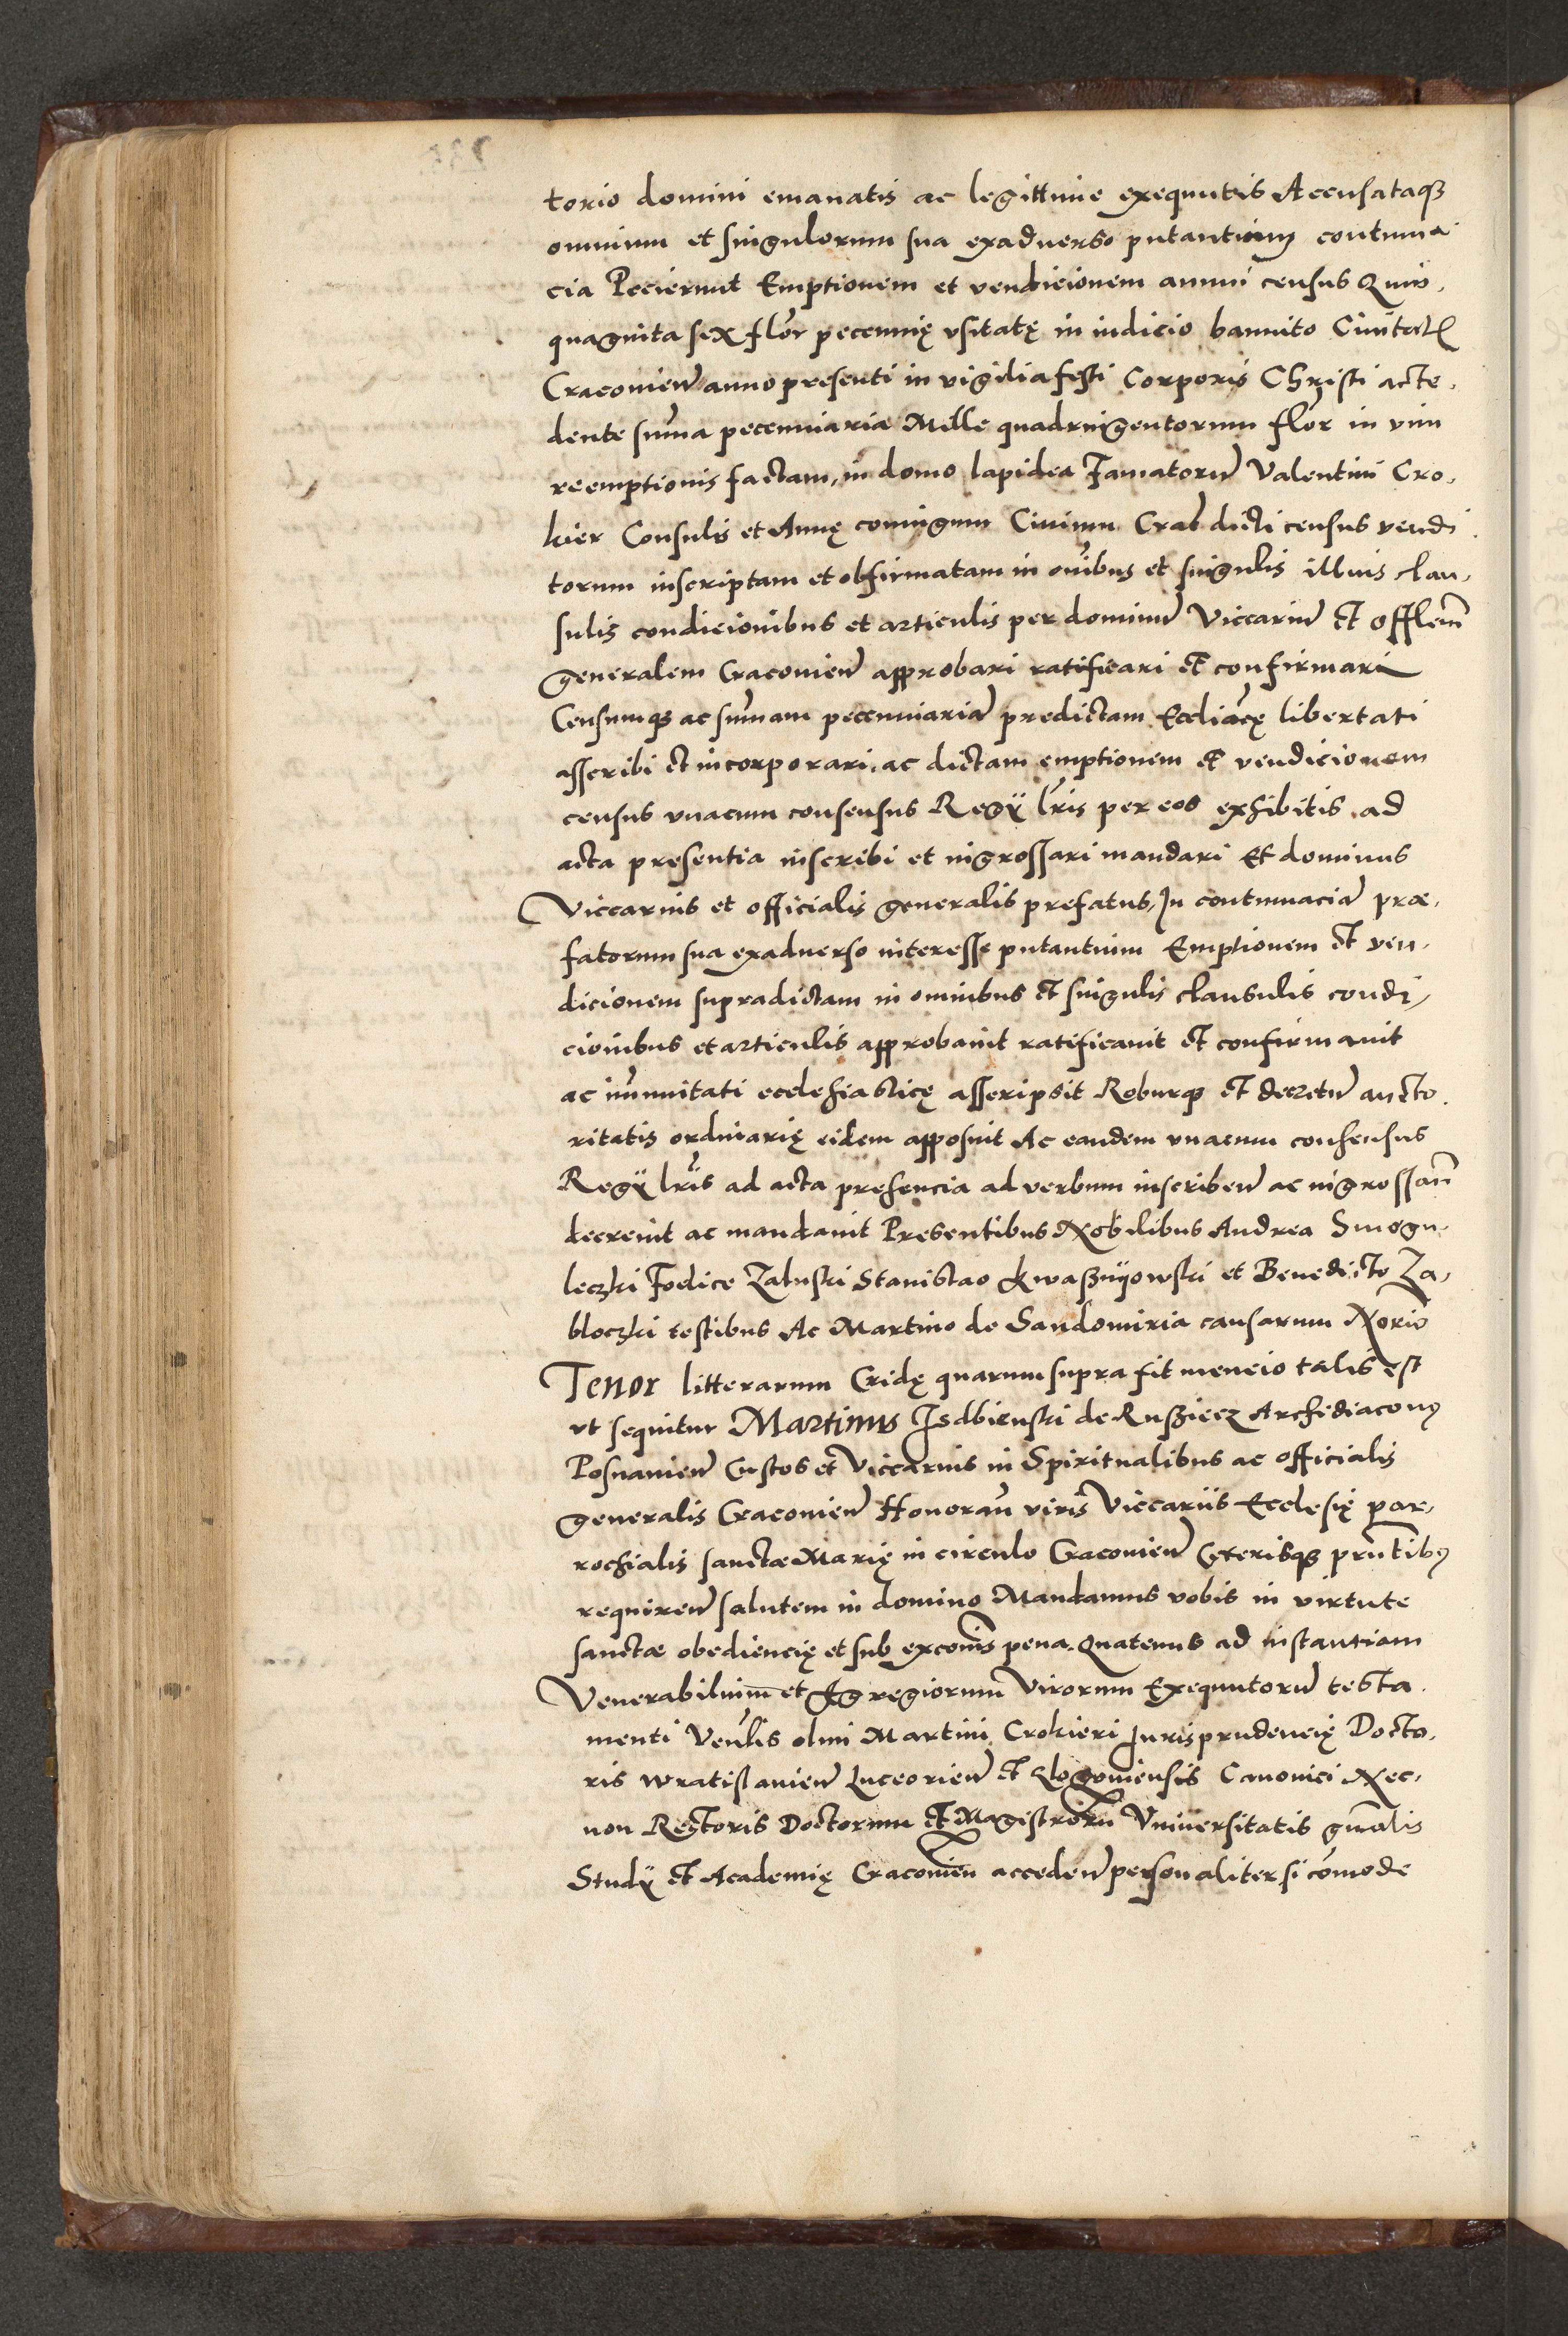 torio domini emanatis ac legittime exequutis Accusataq3
omnium et singulorum sua exaduerso putantium contuma
cia Pecierunt Emptionem et vendicionem annui census Quin,
quaginta sex flor pecennię vsitatę in iudicio bannito Ciuitatis
Cracouien anno presenti in vigilia festi Corporis Christi acte,
dente suma pecenniaria Mille quadringentorum flor in vim
reemptionis factam, in domo lapidea Famatoru Valentini Cro,
kier Consulis et Annę coniugum Ciuium Crac dicti census vendi
torum inscriptam et obfirmatam in oibus et singulis illius clau,
sulis condicionibus et articulis per dominu Viccariu et offlem
generalem Cracouien approbari ratificari et confirmari
Censumq3 ac sumam pecenniaria predictam Eccliacę libertati
asscribi et incorporari, ac dictam emptionem et vendicionem
census vnacum consensus Regÿ lris per eos exhibitis ad
acta presentia inscribi et ingrossari mandari Et dominus
Viccarius et officialis generalis prefatus, In contumacia præ,
fatorum sua exaduerso interesse putantium Emptionem et ven,
dicionem supradictam in omnibus et singulis clausulis condi,
cionibus et articulis approbauit ratificauit et confirmauit
ac imunitati ecclesiasticę asscripsit Roburq3 et decretu aucto,
ritatis ordinarię eidem apposuit Ac eandem vnacum consensus
Regÿ lris ad acta presencia ad verbum inscriben ac ingrossan
decreuit ac mandauit Presentibus Nobilibus Andrea Smogu,
leczki Fœlice Zaluski Stanislao Kwaszniowski et Benedicto Za,
bloczki testibus Ac Martino de Sandomiria causarum Norio
Tenor litterarum Cridę quarum supra fit mencio talis est
vt sequitur Martinus Isdbienski de Rusziecz Archidiaconus
Posnanien Custos et Viccarius in Spiritualibus ac officialis
generalis Cracouien Honoran viris Viccariis Ecclesię par,
rochialis sanctæ Marię in circulo Cracouien Ceterisq3 pntibus
requiren salutem in domino Mandamus vobis in virtute
sanctæ obediencię et sub excoinis pena. Quatenus ad instantiam
Venerabilium et Egregiorum Virorum Exequutoru testa,
menti Venlis olim Martini Crokieri Jurisprudencię Docto,
ris Wratislauien Luceorien et Glogouiensis Canonici Nec,
non Rectoris Doctorum et Magistroru Vniuersitatis gnalis
Studÿ et Academię Cracouien acceden personaliter si comode